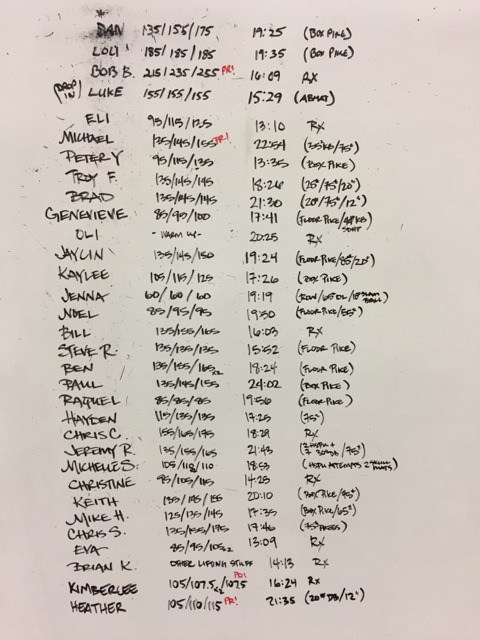 DAN 135/155/175 19:25 (BOX PIKE)
LOLI 185/185/185 19:35 (BOX PIKE)
BOB B. 215/235/255 PR! 16:09 RX
(DROP IN) LUKE 155/155/155 15:29 (ABMAT)
ELI 95/115/135 13:10 RX
MICHAEL 135/145/155 PR! 22:54 (35KB/75#)
PETER Y 95/115/135 13:35 (BOX PIKE)
TROY F. 135/145/145 18:26 (25#/75#/20")
BRAD 135/145/145 21:30 (20#/75#/12")
GENEVIEVE 85/90/100 17:41 (FLOOR PIKE/
OLI - WARM UP - 20:25 RX
JAYLIN 135/145/150 19:24 (FLOOR PIKE/85#/20")
KAYLEE 105/115/125 17:26 (BOX PIKE)
JENNA 60/60/60 19:19 (ROW/65# DL/ SLAM BALL)
NOEL 85/95/95 19:50 (FLOOR PIKE/55#)
BILL 135/155/165 16:03 RX
STEVE R. 135/135/135 15:52 (FLOOR PIKE)
BEN 135/155/165x2 18:24 (FLOOR PIKE)
PAUL 135/145/155 24:02 (BOX PIKE)
RAQUEL 85/85/85 19:56 (FLOOR PIKE)
HAYDEN 115/135/135 17:25 (75#)
CHRIS C. 155/165/175 18:29 RX
JEREMY R. 135/155/165 21:43 (2 HSPU + /75#)
MICHELLE S. 105/110/110 18:53 (HSPU ATTEMPTS 2 MATS)
CHRISTINE 95/105/115 14:25 RX
KEITH 135/145/155 20:10 (BOX PIKE/95#)
MIKE H. 125/135/145 17:35 (BOX PIKE/65#)
CHRIS S. 135/155/175 17:46 (75#
EVA 85/95/105x2 13:09 RX
BRIAN K. OTHER LIFTING STUFF 14:13 RX
KIMBERLEE 105/107.5x2/107.5 PR! 16:24 RX
HEATHER 105/110/115 PR! 21:35 (20# DB/12")